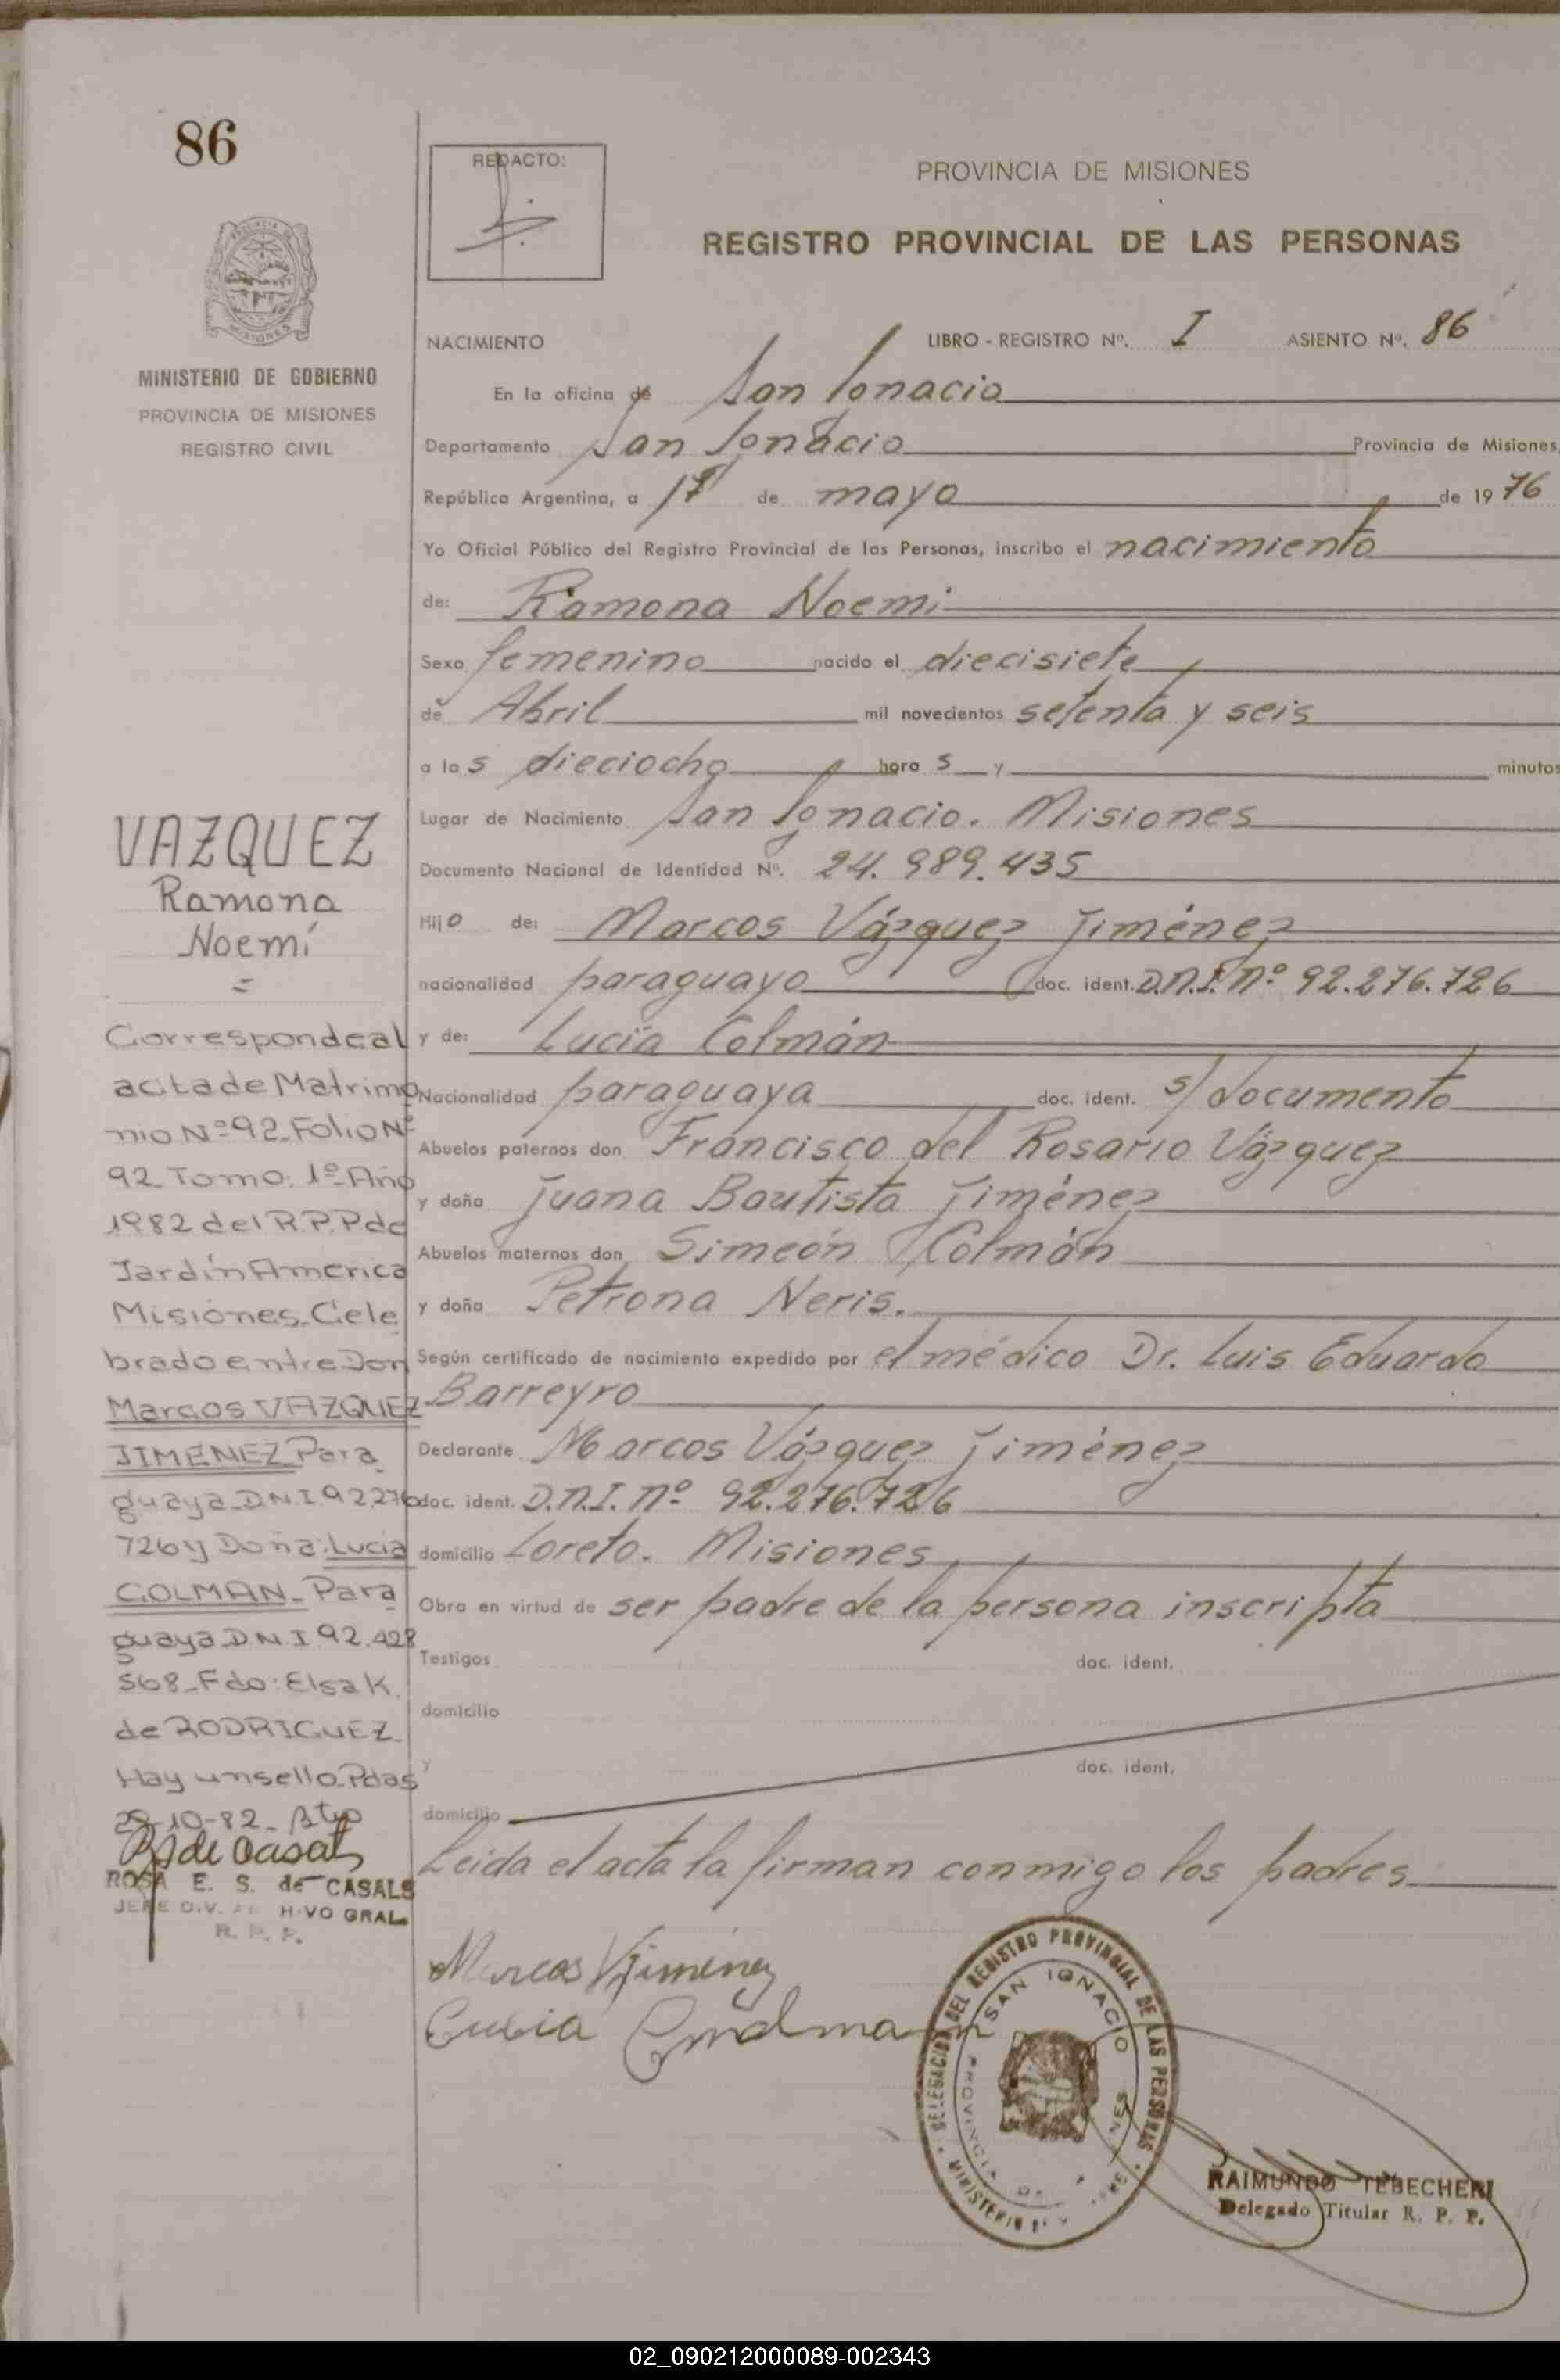 86
REDACTO:
PROVINCIA DE MISIONES
REGISTRO PROVINCIAL DE LAS PERSONAS
MINISTERIO DE GOBIERNO
PROVINCIA DE MISIONES
REGISTRO CIVIL
NACIMIENTO LIBRO - REGISTRO Nº. I ASIENTO Nº. 86
En la oficina de San Ignacio
Departamento San Ignacio Provincia de Misiones,
República Argentina, a 17 de mayo de 1976
Yo Oficial Público del Registro Provincial de las Personas, inscribo el nacimiento
de: Ramona Noemi
Sexo femenino nacido el diecisiete
de Abril mil novecientos setenta y seis
a las dieciocho horas y minutos
Lugar de Nacimiento San Ignacio. Misiones
Documento Nacional de Identidad Nº. 24.989.435
Hijo de: Marcos Vázquez Jiménez
nacionalidad paraguayo doc. ident. D.N.I. nº 92.276.726
y de: Lucía Colmán
Nacionalidad paraguaya doc. ident. s/documento
Abuelos paternos don Francisco del Rosario Vázquez
y doña Juana Bautista Jiménez
Abuelos maternos don Simeón Colmán
y doña Petrona Neris.
Según certificado de nacimiento expedido por el médico Dr. Luis Eduardo
Barreyro
Declarante Marcos Vázquez Jiménez
doc. ident. D.N.I. nº 92.276.726
domicilio Loreto. Misiones
Obra en virtud de ser padre de la persona inscripta
Testigos doc. ident.
domicilio
y doc. ident.
domicilio
Leida el acta la firman conmigo los padres
Marcos V Jimenez
Lucia Colman
VAZQUEZ
Ramona
Noemí
=
Corresponde al
acta de Matrimo
nio Nº 92 Folio Nº
92 Tomo: 1º Año
1982 del R.P.P de
Jardín America
Misiones. Cele
brado entre Don
Marcos VAZQUEZ
JIMENEZ Para
guaya D N I 92276
726 y Doña: Lucia
COLMAN - Para
guaya D N I 92.428
568 - Fdo: Elsa K.
de RODRIGUEZ
Hay un sello. Pdas
29-10-82-
ROSA E. S. de CASALS
JEFE DIV. ARCHIVO GRAL
R. P. P.
DELEGACION DEL REGISTRO PROVINCIAL DE LAS PERSONAS
SAN IGNACIO
RAIMUNDO TEBECHERI
Delegado Titular R. P. P.
02_090212000089-002343